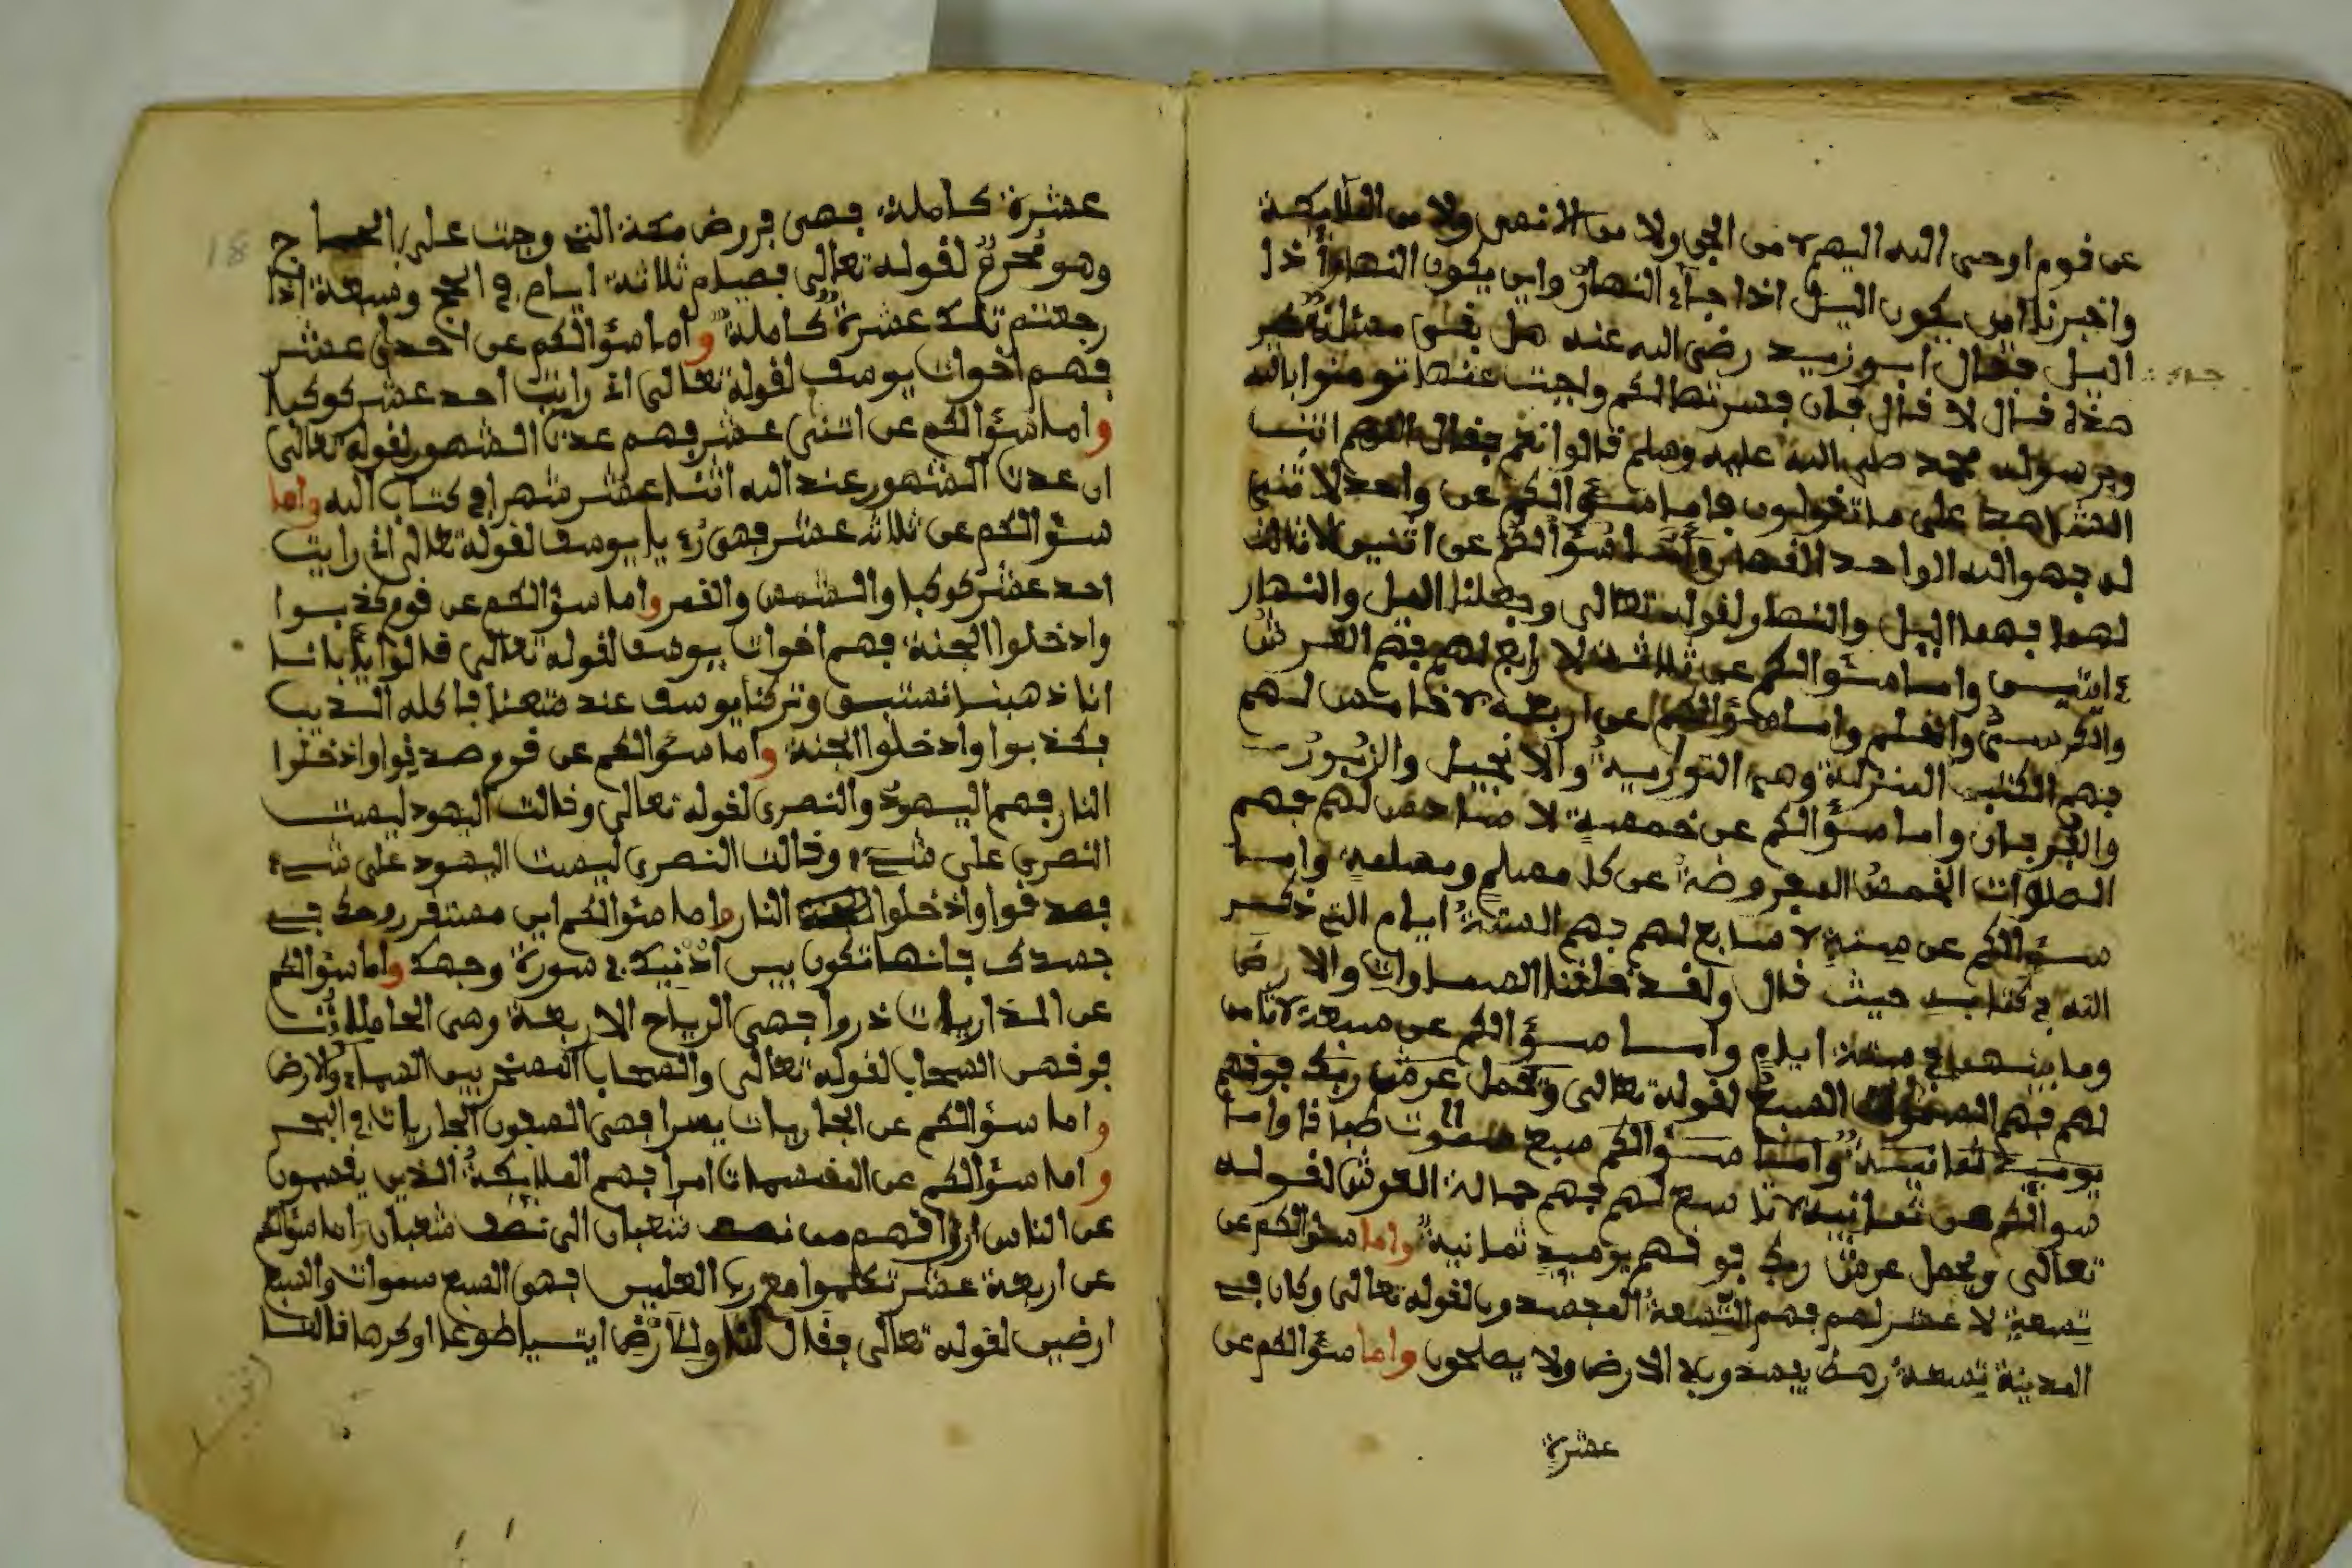 عن قوم اوحى الله اليهم لا من الجن ولا من الانس ولا من الملايكة
واخبرنا اين يكون اليل اذا جاء النهار واين يكون النهار اذا
اليل فقال ابو زيد رضى الله عنه هل بقى مسئلة غير
هذا قال لا قال فان فسرتها لكم واجبت عنها تومنوا بالله
وبرسوله محمد صلى الله عليه وسلم قالوا نعم فقال اللهم انت
الشاهد على ما تقولون فاما سؤالكم عن واحد لا ثنى
له فهو الله الواحد القهار واما سؤالكم عن اثنين لا ثالث
لهما فهما اليل والنهار لقوله تعالى وجعلنا اليل والنهار
ءايتين واما سؤالكم عن ثلاثة لا رابع لهم فهم العرش
والكرسى والقلم واما سؤالكم عن اربعة لا خامس لهم
فهم الكتب المنزلة وهم التورية والانجيل والزبور
والفرقان واما سؤالكم عن خمسة لا سادس لهم فهم
الصلوات الخمس المفروضة عن كل مسلم ومسلمة واما
سؤالكم عن ستة لا سابع لهم فهم الستة ايام التى ذكر
الله فى كتابه حيث قال ولقد خلقنا السماوات والارض
وما بينهما فى ستة ايام واما سؤالكم عن سبعة لا ثامن
لهم فهم السموات السبع لقوله تعالى ويحمل عرش ربك فوقهم
يوميذ ثمانية واما سؤالكم سبع سموت طباقا واما
سوالكم عن ثمانية لا تاسع لهم فهم حمالة العرش لقوله
تعالى ويحمل عرش ربك فوقهم يوميذ ثمانية واما سؤالكم عن
تسعة لا عشر لهم فهم التسعة المفسدون لقوله تعالى وكان فى
المدينة تسعة رهط يفسدون فى الارض ولا يصلحون واما سؤالكم عن
عشرة
عشرة كاملة فهى فروض مكة التى وجبت على الحجاج
وهو محرم لقوله تعالى فصيام ثلاثة ايام فى الحج وسبعة اذا
رجعتم تلك عشرة كاملة واما سؤالكم عن احدى عشر
فهم اخوات يوسف لقوله تعالى انى رايت احد عشر كوكبا
واما سؤالكم عن اثنى عشر فهم عدت الشهور لقوله تعالى
ان عدت الشهور عند الله اثنا عشر شهرا فى كتاب الله واما
سؤالكم عن ثلاثه عشر فهى رءيا يوسف لقوله تعالى انى رايت
احد عشر كوكبا والشمس والقمر واما سؤالكم عن قوم كذبوا
وادخلوا الجنة فهم اخوات يوسف لقوله تعالى قالوا يابانا
انا ذهبنا نستبق وتركنا يوسف عند متعنا فاكله الذيب
فكذبوا وادخلوا الجنة واما سؤالكم عن قوم صدقوا وادخلوا
النار فهم اليهود والنصرى لقوله تعالى وقالت اليهود ليست
النصرى على شىء وقالت النصرى ليست اليهود على شىء
فصدقوا وادخلوا النار واما سؤالكم اين مستقر روحك فى
جسدك فانها تكون بين اذنيك فى سورة وجهك واما سؤالكم
عن الذاريات ذروا فهى الرياح الاربعة وهى الحاملات
فوفهى السحاب لقوله تعالى والسحاب المسخر بين السماء والارض
واما سؤالكم عن الجاريات يسرا فهى السفون الجاريات فى البحر
واما سؤالكم عن المقسمات امرا فهم الملايكة الذين يقسمون
عن الناس ارزاقهم من نصف شعبان الى نصف شعبان اما سؤالكم
عن اربعة عشر تكلموا مع رب العلمين فهو السبع سموات والسبع
ارضين لقوله تعالى فقال لها وللارض ايتيا طوعا او كرها قالتا
18